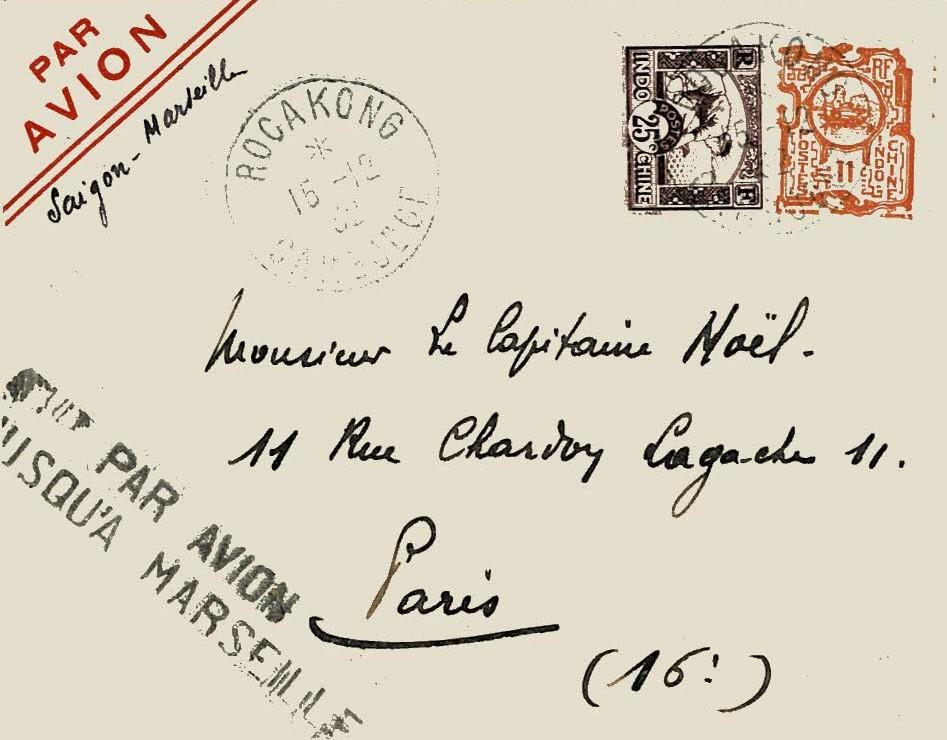 PAR
AVION
Saigon - Marseille
ROCAKONG
15 -12
32
CAMBODGE
RF
INDOCHINE
POSTES
25c
RF
POSTES
INDO
CHINE
11
Monsieur Le Capitaine Noël.
11 Rue Chardon Lagache 11.
Paris
(16e)
PAR AVION
JUSQU'A MARSEILLE